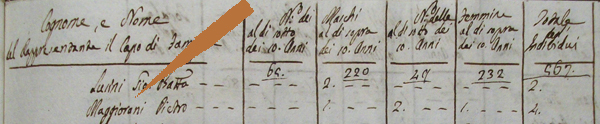 Cognome, e Nome
del Rappresentante il Capo di Fam
N.o dei al di sotto dei 10. Anni
Maschi al di sopra dei 10. Anni
N.o delle al di sotto 10. Anni
Femmine al di sopra dei 10. Anni
Totale Individui
220 49 232 567.
Lucini 2. 2.
Maggiorani Pietro 1. 2. 1. 4.